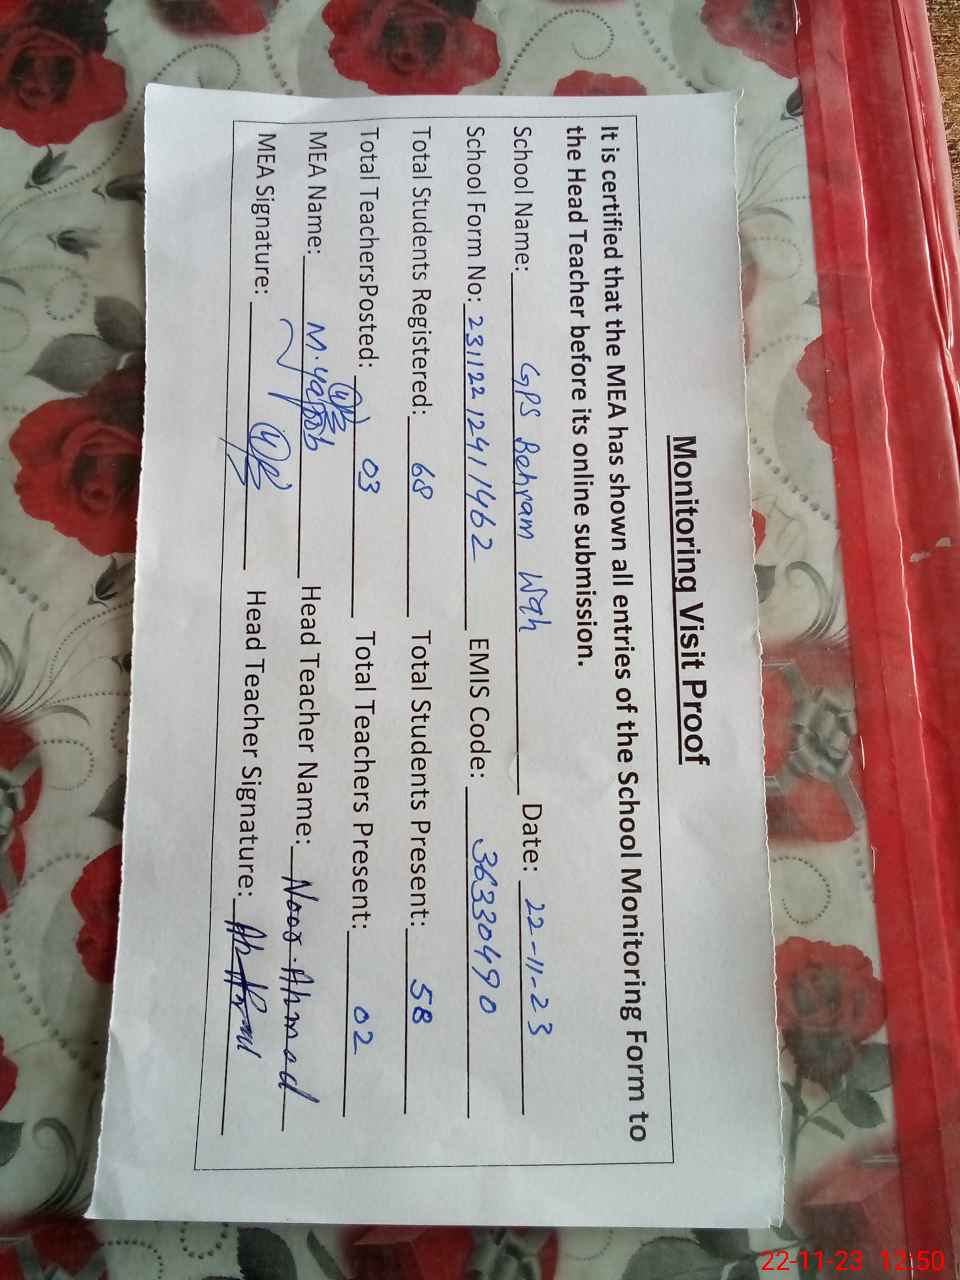 Monitoring Visit Proof
It is certified that the MEA has shown all entries of the School Monitoring Form to
the Head Teacher before its online submission.
School Name: GPS Behram Wah Date: 22-11-23
School Form No: 231122 1241 1462 EMIS Code: 36330490
Total Students Registered: 68 Total Students Present: 58
Total TeachersPosted: 03 Total Teachers Present: 02
MEA Name: M. Yaqoob Head Teacher Name: Noor Ahmad
MEA Signature: Head Teacher Signature:
22-11-23 12:50